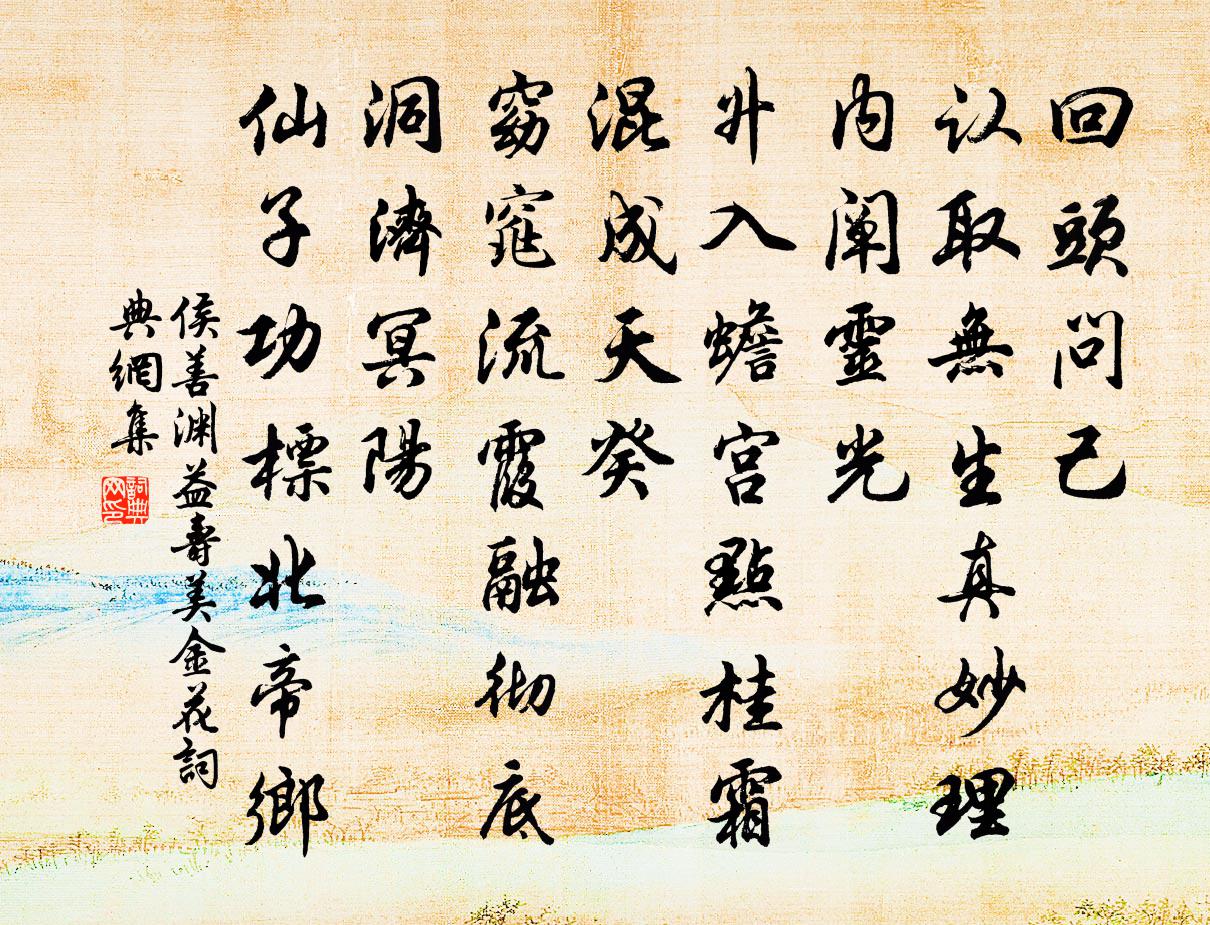 回頭問己
认取無生真妙理
内阐靈光
升入蟾宫點桂霜
混成天癸
窈窕流霞融彻底
洞濟冥陽
仙子功標北帝鄉
侯善渊益壽美金花詞
典網集
詞典網印